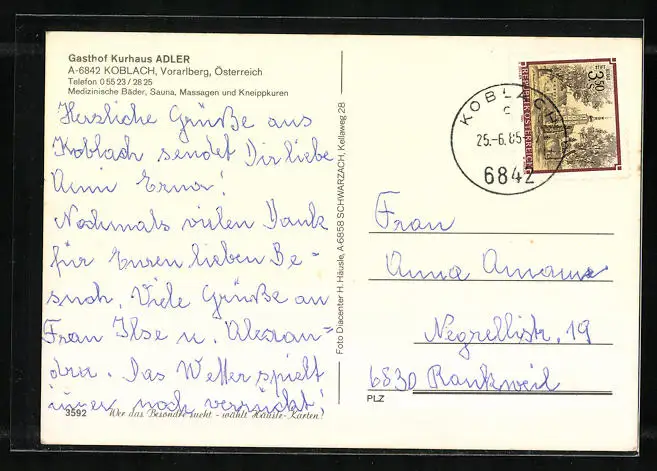 Gasthof Kurhaus ADLER
A-6842 KOBLACH, Vorarlberg, Österreich
Telefon 0 55 23 / 28 25
Medizinische Bäder, Sauna, Massagen und Kneippkuren
Herzliche Grüße aus
Koblach sendet Dir liebe
Erna!
Nochmals vielen Dank
für Euren lieben Be-
such. Viele Grüße an
Frau Ilse u. Alexan-
dra. Das Wetter spielt
immer noch verrückt!
3592 Wer das Besondre sucht - wählt Häusle-Karten!
Foto Diacenter H. Häusle, A-6858 SCHWARZACH, Kellaweg 28
3.50
REPUBLIK ÖSTERREICH
KOBLACH
c
25.-6.85
6842
Frau
Anna
Negrellistr. 19
6830 Rankweil
PLZ